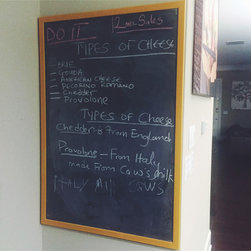 DO IT
TYPES OF CHEESE
- BRIE
- GOUDA
- AMERICAN CHEESE
- PECORINO ROMANO
- Chedder
- Provolone
Types of Cheese
Chedder is From England
Provolone - From Italy
made From Cow's milk
ITALY MII COWS